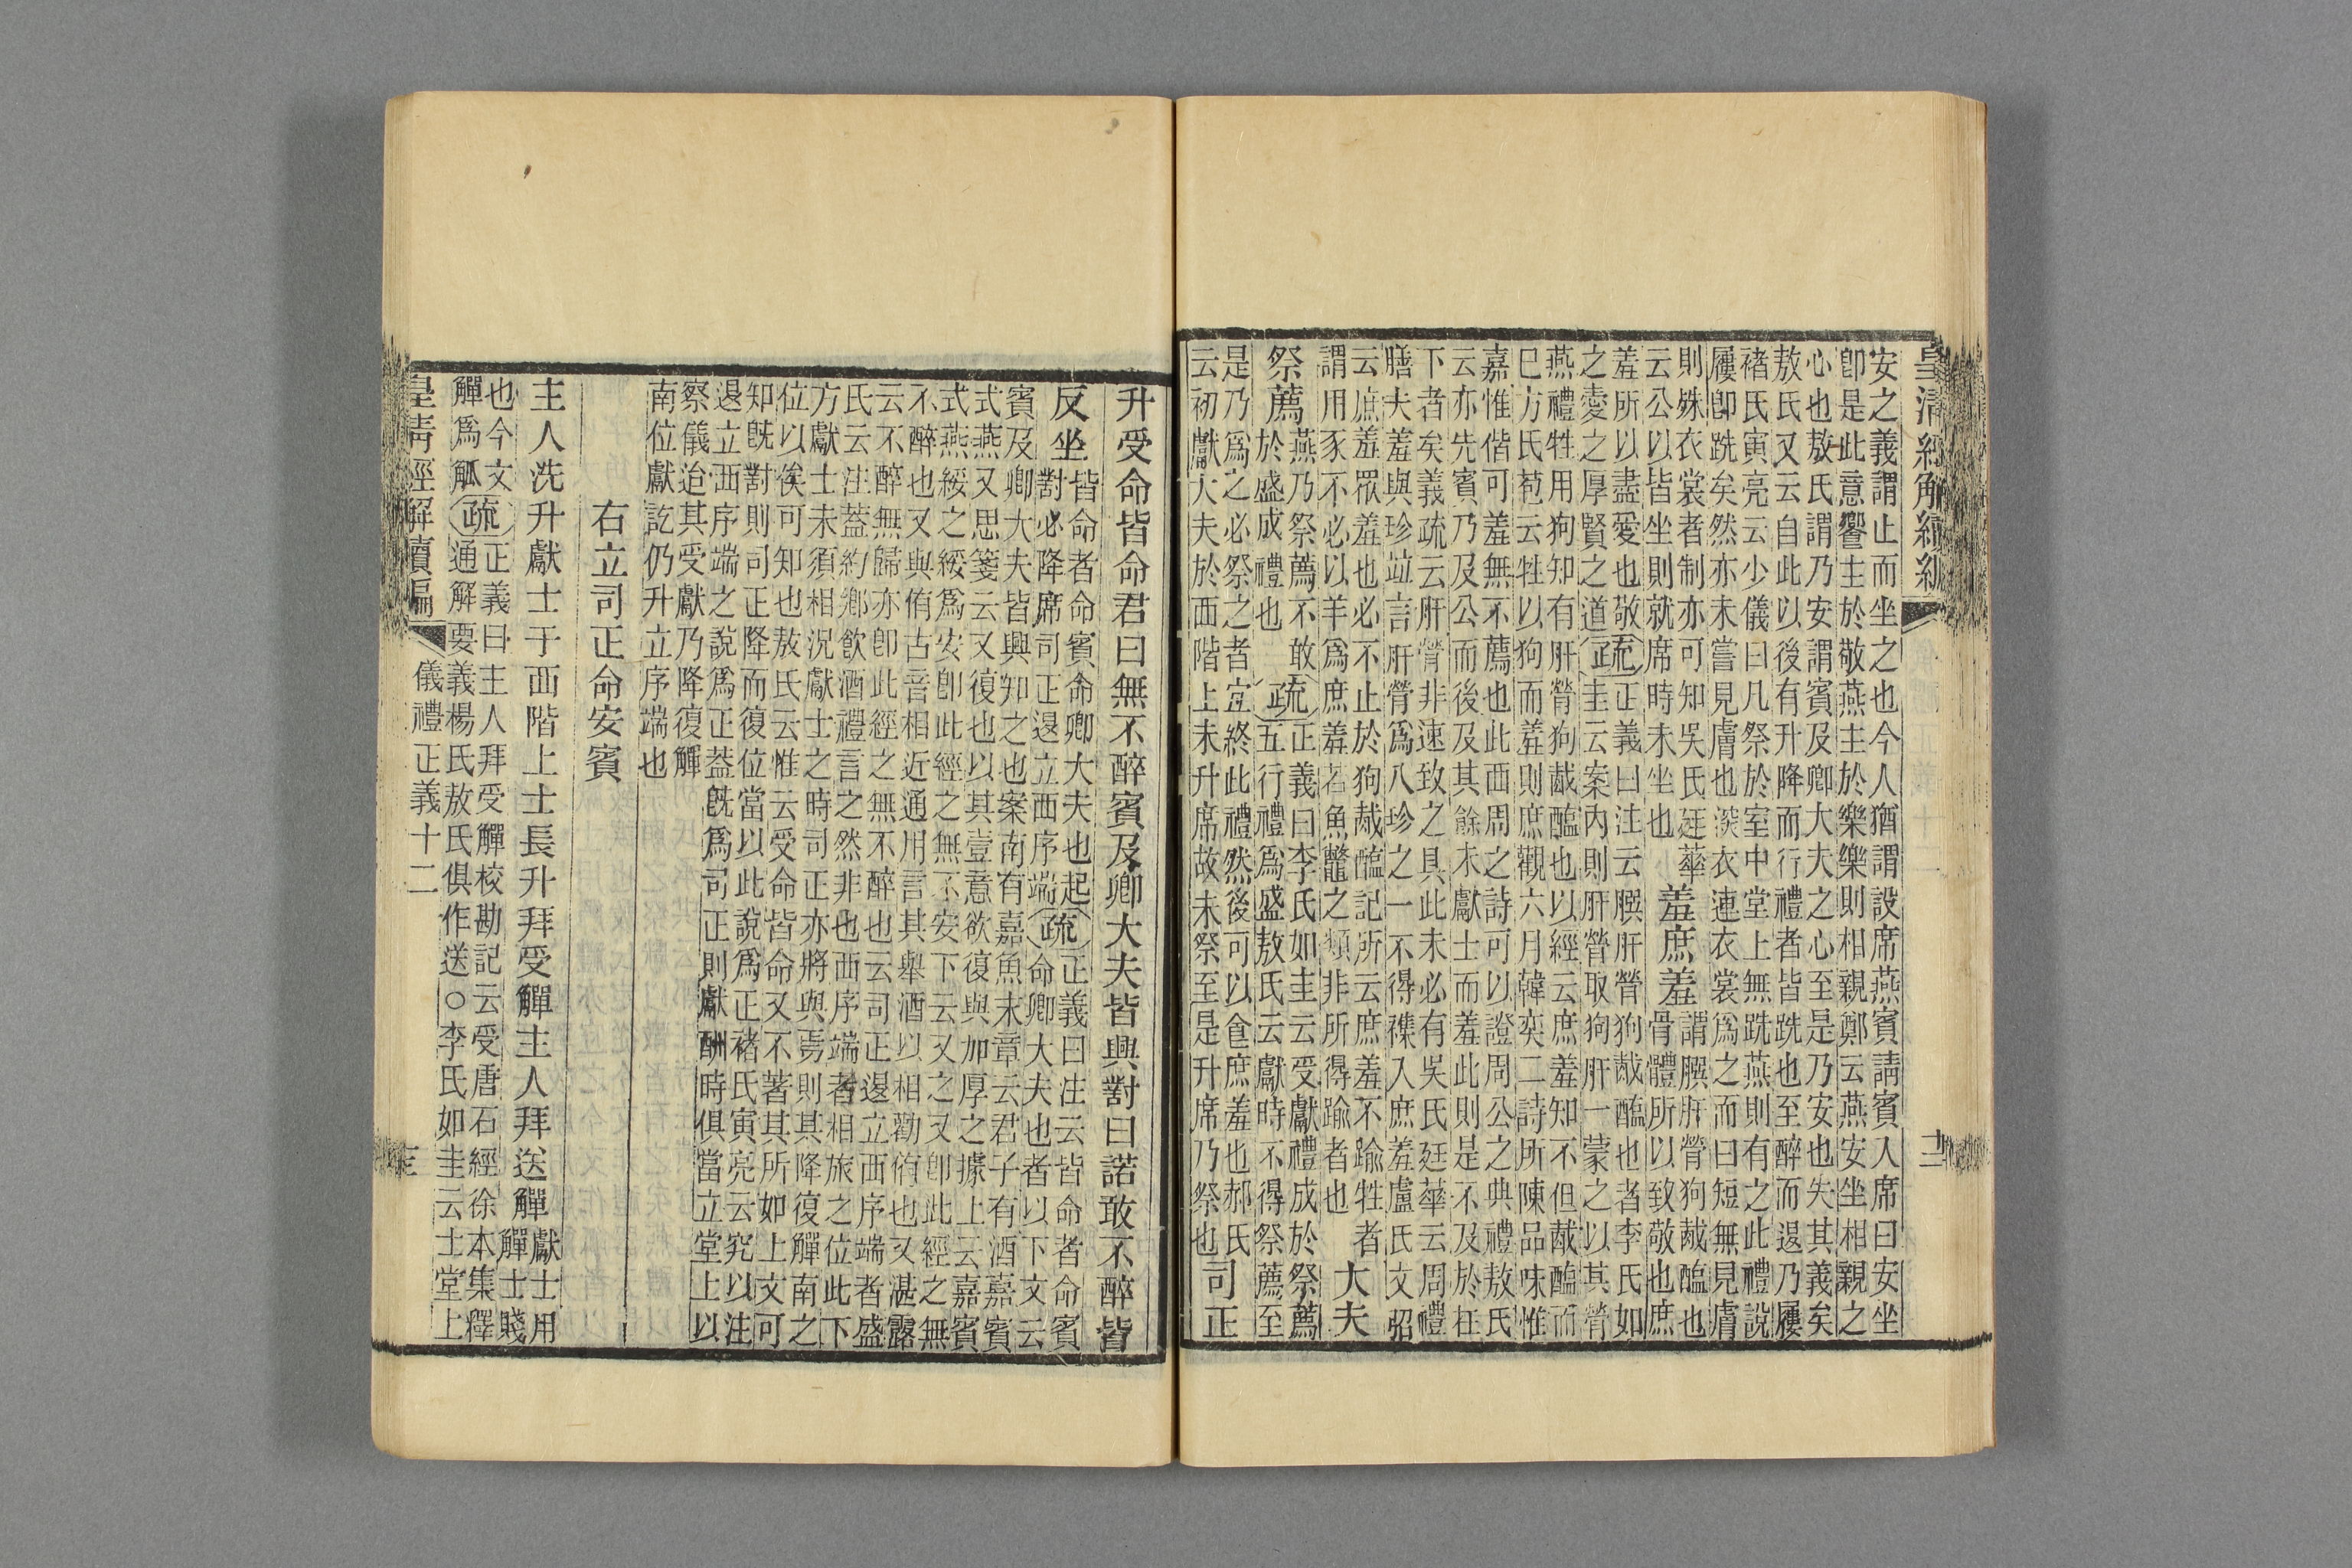 皇清經解續編
安之義謂止而坐之也今人猶謂設席燕賓請賓入席曰安坐
卽是此意響主於敬燕主於樂樂則相親鄭云燕安坐相親之
心也敖氏謂乃安謂賓及卿大夫之心至是乃安也失其義矣
敖氏又云自此以後有升降而行禮者皆跣也至醉而退乃屨
褚氏寅亮云少儀曰凡祭於室中堂上無跣燕則有之此禮說
屨卽跣矣然亦未嘗見膚也深衣連衣裳爲之而曰短無見膚
則姝衣裳者制亦可知吳氏廷華
云公以皆坐則就席時未坐也
羞庶羞
謂膷肝膋狗胾醢也
骨體所以致敬也庶
羞所以盡愛也敬
之愛之厚賢之道
疏
正義曰注云膷肝膋狗胾醢也者李氏如
圭云案內則肝膋取狗肝一蒙之以其膋
燕禮牲用狗知有肝膋狗胾醢也以經云庶羞知不但胾醢而
已方氏苞云牲以狗而羞則庶觀六月韓奕二詩所陳品味惟
嘉惟偕可羞無不薦也此西周之詩可以證周公之典禮敖氏
云亦先賓乃及公而後及其餘未獻士而羞此則是不及於在
下者矣義疏云肝膋非速致之具此未必有吳氏廷華云周禮
膳夫羞與珍竝言肝膋爲八珍之一不得襍入庶羞盧氏文弨
云庶羞眾羞也必不止於狗胾醢記所云庶羞不踰牲者
謂用豕不必以羊爲庶羞若魚鼈之類非所得踰者也
大夫
祭薦
燕乃祭薦不敢
於盛成禮也
疏
正義曰李氏如圭云受獻禮成於祭薦
五行禮爲盛敖氏云獻時不得祭薦至
是乃爲之必祭之者宜終此禮然後可以食庶羞也郝氏
云初獻大夫於西階上未升席故未祭至是升席乃祭也
司正
升受命皆命君曰無不醉賓及卿大夫皆興對曰諾敢不醉皆
反坐
皆命者命賓命卿大夫也起
對必降席司正退立西序端
疏
正義曰注云皆命者命賓
命卿大夫也者以下文云
賓及卿大夫皆興知之也案南有嘉魚末章云君子有酒嘉賓
式燕又思箋云又復也以其壹意欲復與加厚之據上云嘉賓
式燕綏之綏爲安卽此經之無不安下云又之又卽此經之無
不醉也又與侑古音相近通用言其舉酒以相勸侑也又湛露
云不醉無歸亦卽此經之無不醉也云司正退立西序端者盛
氏云注蓋約鄉飲酒禮言之然非也西序端者相旅之位此下
方獻士未須相況獻士之時司正亦將與焉則其降復觶南之
位以俟可知也敖氏云惟云受命皆命又不著其所如上文可
知旣對則司正降而復位當以此說爲正褚氏寅亮云究以注
退立西序端之說爲正蓋旣爲司正則獻酬時俱當立堂上以
察儀迨其受獻乃降復觶
南位獻訖仍升立序端也
右立司正命安賓
主人洗升獻士于西階上士長升拜受觶主人拜送觶
獻士用
觶士賤
也今文
觶爲觚
疏
正義曰主人拜受觶校勘記云受唐石經徐本集釋
通解要義楊氏敖氏俱作送○李氏如圭云士堂上
皇清經解續編
儀禮正義十二